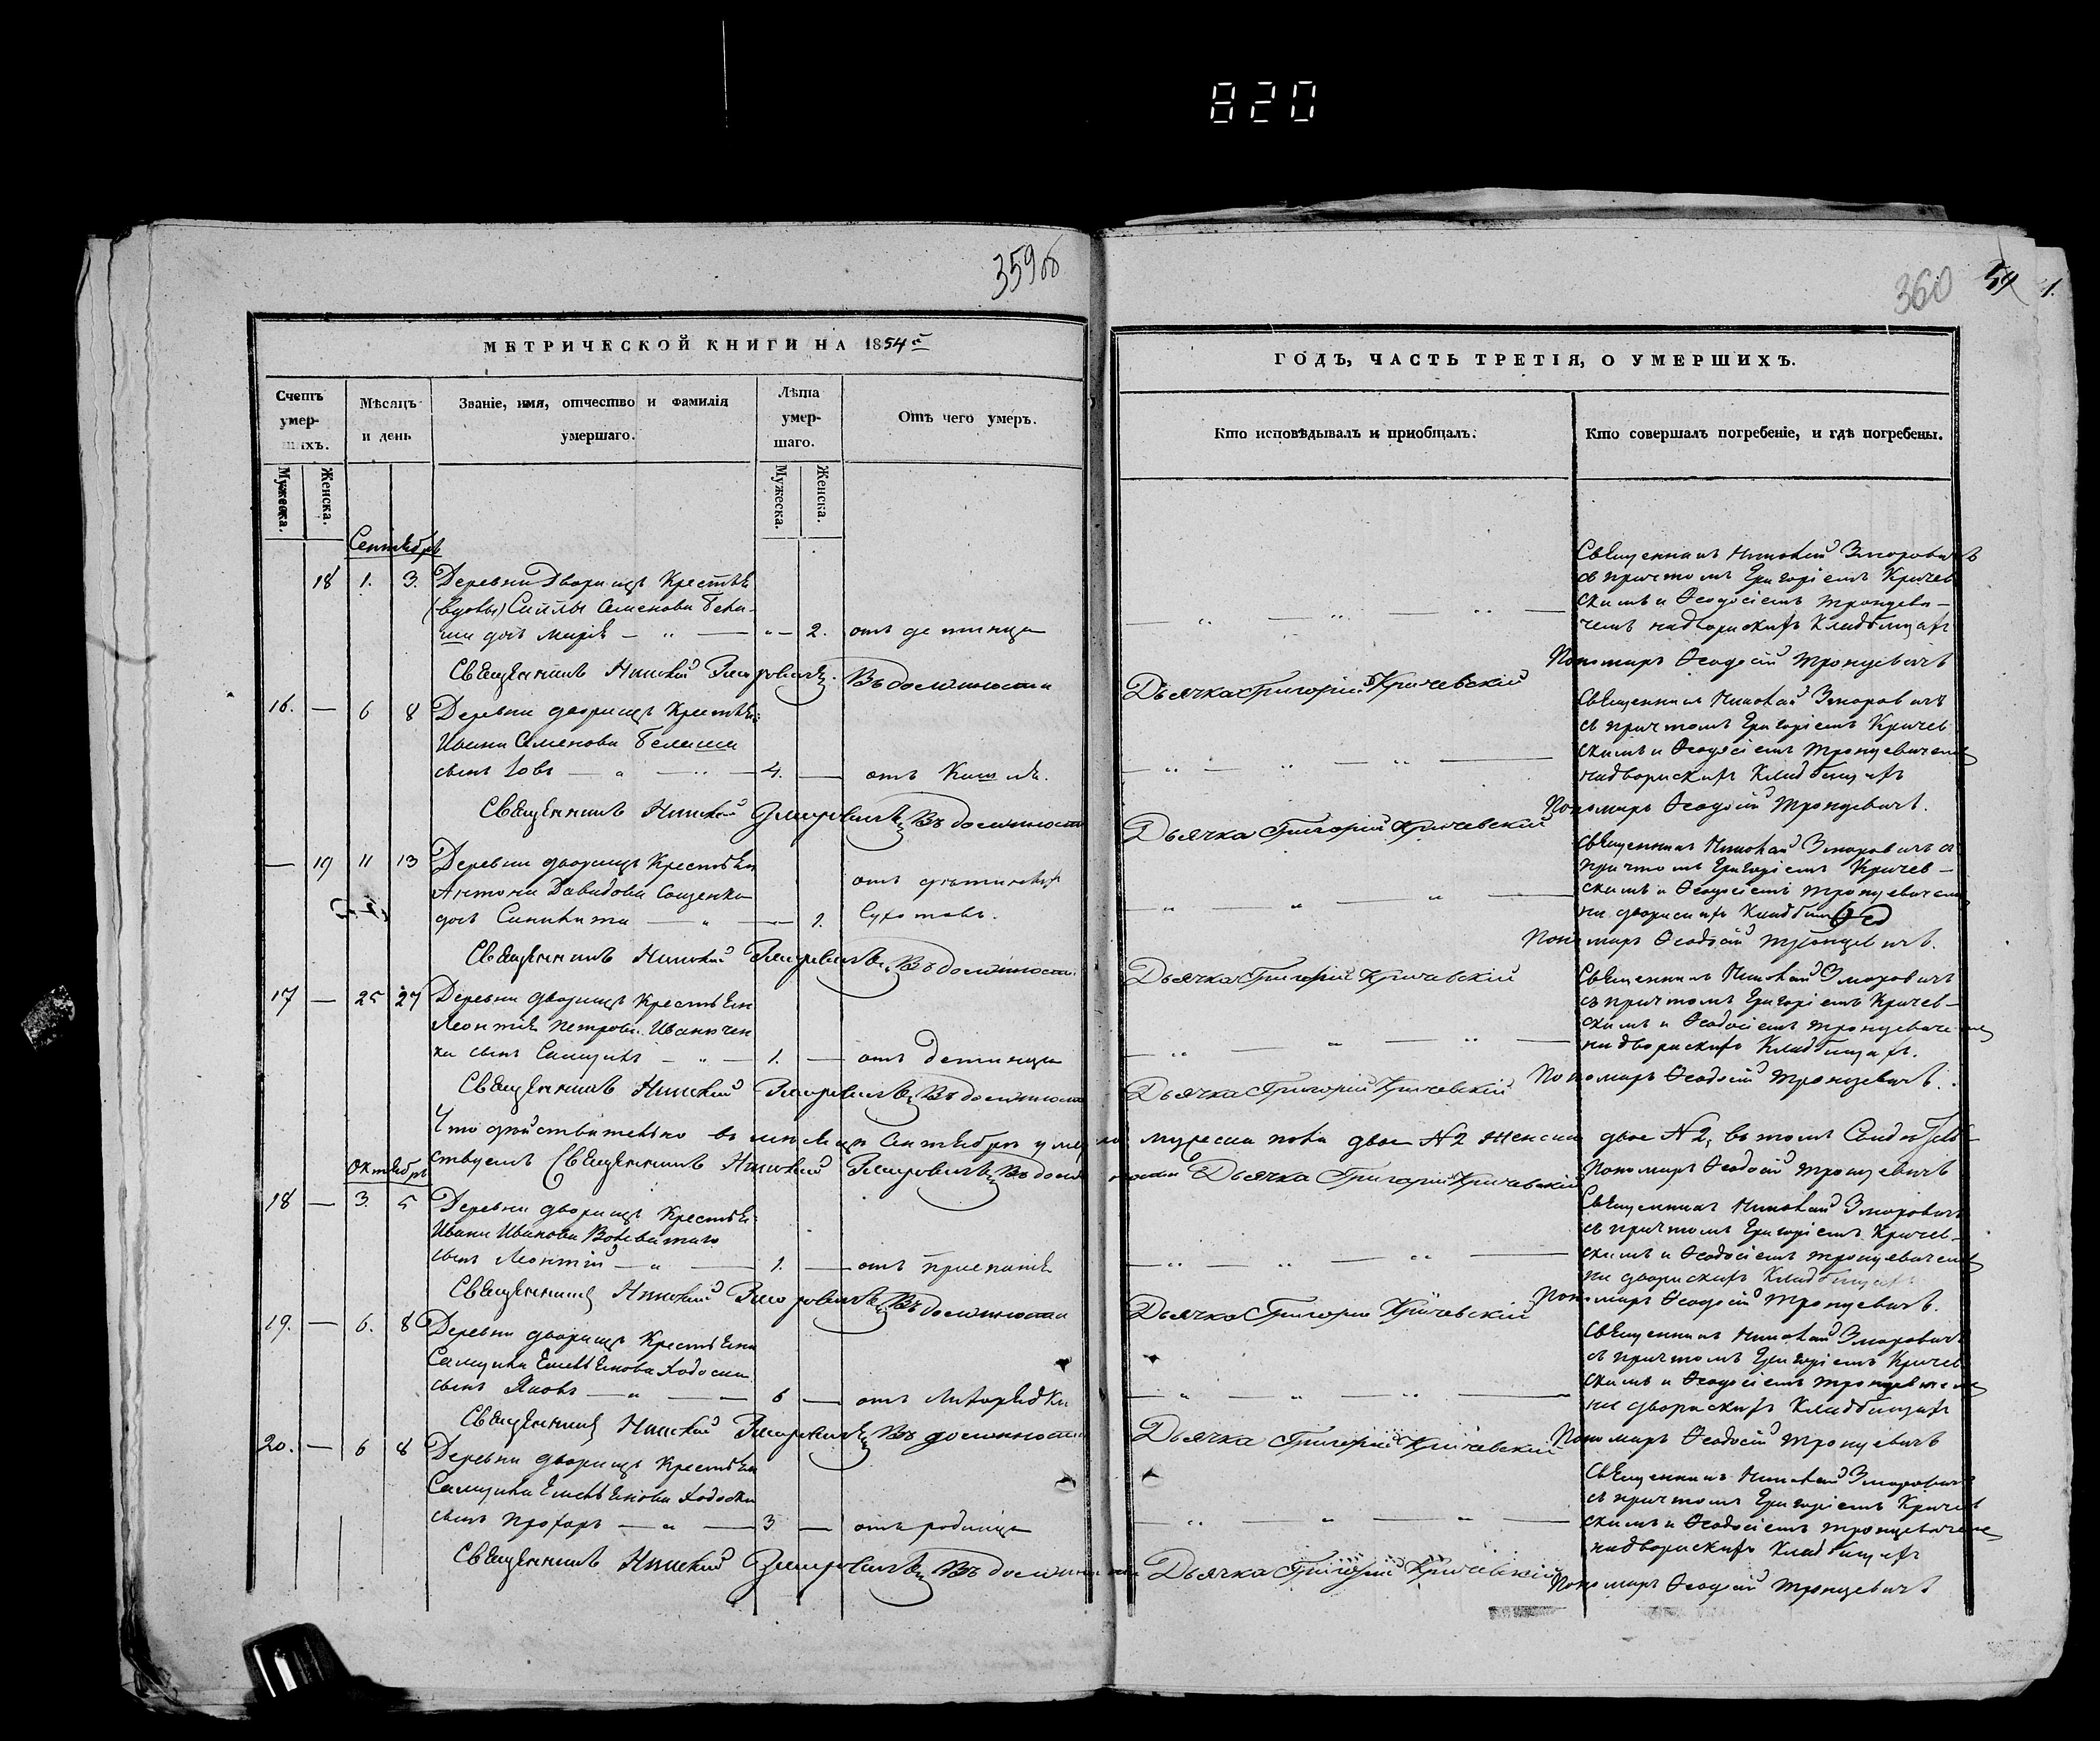 820
359об
360
54
1.
МЕТРИЧЕСКОЙ КНИГИ НА 1854й
ГОДЪ, ЧАСТЬ ТРЕТІЯ, О УМЕРШИХЪ.
Счетъ умер-шихъ.
Мѣсяцъ и день
Званіе, имя, отчество и фамилія умершаго.
Лѣта умер-шаго.
Отъ чего умеръ.
Кто исповѣдывалъ и пріобщалъ.
Кто совершалъ погребеніе, и гдѣ погребены.
Мужеска.
Женска.
Мужеска.
Женска.
Сентябрь
18 1. 3. Деревни Дворищъ Крестьян
(вдовы) Семенова
дочь Марія 2. отъ
Священникъ Николай Зморовичъ
съ причтомъ Григоріемъ Кричев
скимъ и Ѳеодосіемъ Тронцеви-
чемъ на дворискихъ Кладбищахъ
Священникъ Николай Зморовичъ. Въ должности
Дьячка Григорій Кричевскій
Пономарь Ѳеодосій Тронцевичъ
16. — 6 8 Деревни дворищъ Крестьян
Ивана Семенова
сынъ Іовъ 4. — отъ Кашля.
Священникъ Николай Зморовичъ
съ причтомъ Григоріемъ Кричев
скимъ и Ѳеодосіемъ Тронцевичемъ
на дворискихъ Кладбищахъ
Священникъ Николай Зморовичъ Въ должности
Дьячка Григорій Кричевскій
Пономарь Ѳеодосій Тронцевичъ.
— 19 11 13 Деревни дворищъ Крестьян
Антона Давидова
дочь 1. отъ
Священникъ Николай Зморовичъ съ
причтомъ Григоріемъ Кричев-
скимъ и Ѳеодосіемъ Тронцевичемъ
на дворискихъ
Священникъ Николай Зморовичъ Въ должности
Дьячка Григорій Кричевскій
Пономарь Ѳеодосій Тронцевичъ.
17 — 25 27 Деревни дворищъ Крестьян
Леонтія Петрова Иванчен
ка сынъ 1. — отъ
Священникъ Николай Зморовичъ
съ причтомъ Григоріемъ Кричев-
скимъ и Ѳеодосіемъ Тронцевичемъ
на дворискихъ Кладбищахъ.
Священникъ Николай Зморовичъ Въ должности
Дьячка Григорій Кричевскій
Пономарь Ѳеодосій Тронцевичъ.
Что дѣйствительно въ месяцѣ Сентябрѣ умерло мужеска пола двое №2 женска двое №2, въ томъ
ствуемъ Священникъ Николай Зморовичъ Въ должности Дьячка Григорій Кричевскій
Пономарь Ѳеодосій Тронцевичъ
Октябрь
18 — 3. 5 Деревни дворищъ Крестьян
Ивана Иванова
сынъ Леонтій 1. — отъ
Священникъ Николай Зморовичъ
съ причтомъ Григоріемъ Кричев-
скимъ и Ѳеодосіемъ Тронцевичемъ
на дворискихъ Кладбищахъ
Священникъ Николай Зморовичъ Въ должности
Дьячка Григорій Кричевскій
Пономарь Ѳеодосій Тронцевичъ.
19. — 6. 8 Деревни дворищъ Крестьян
Ходоски
сынъ Яковъ 6 — отъ Лихорядки
Священникъ Николай Зморовичъ
съ причтомъ Григоріемъ Кричев
скимъ и Ѳеодосіемъ Тронцевичемъ
на дворискихъ Кладбищахъ
Священникъ Николай Зморовичъ Въ должности
Дьячка Григорій Кричевскій
Пономарь Ѳеодосій Тронцевичъ
20. — 6 8 Деревни дворищъ Крестьян
Ходоски
сынъ Прохоръ 3 — отъ
Священникъ Николай Зморовичъ
съ причтомъ Григоріемъ Кричев
скимъ и Ѳеодосіемъ Тронцевичемъ
на дворискихъ Кладбищахъ
Священникъ Николай Зморовичъ Въ должности Дьячка Григорій Кричевскій
Пономарь Ѳеодосій Тронцевичъ